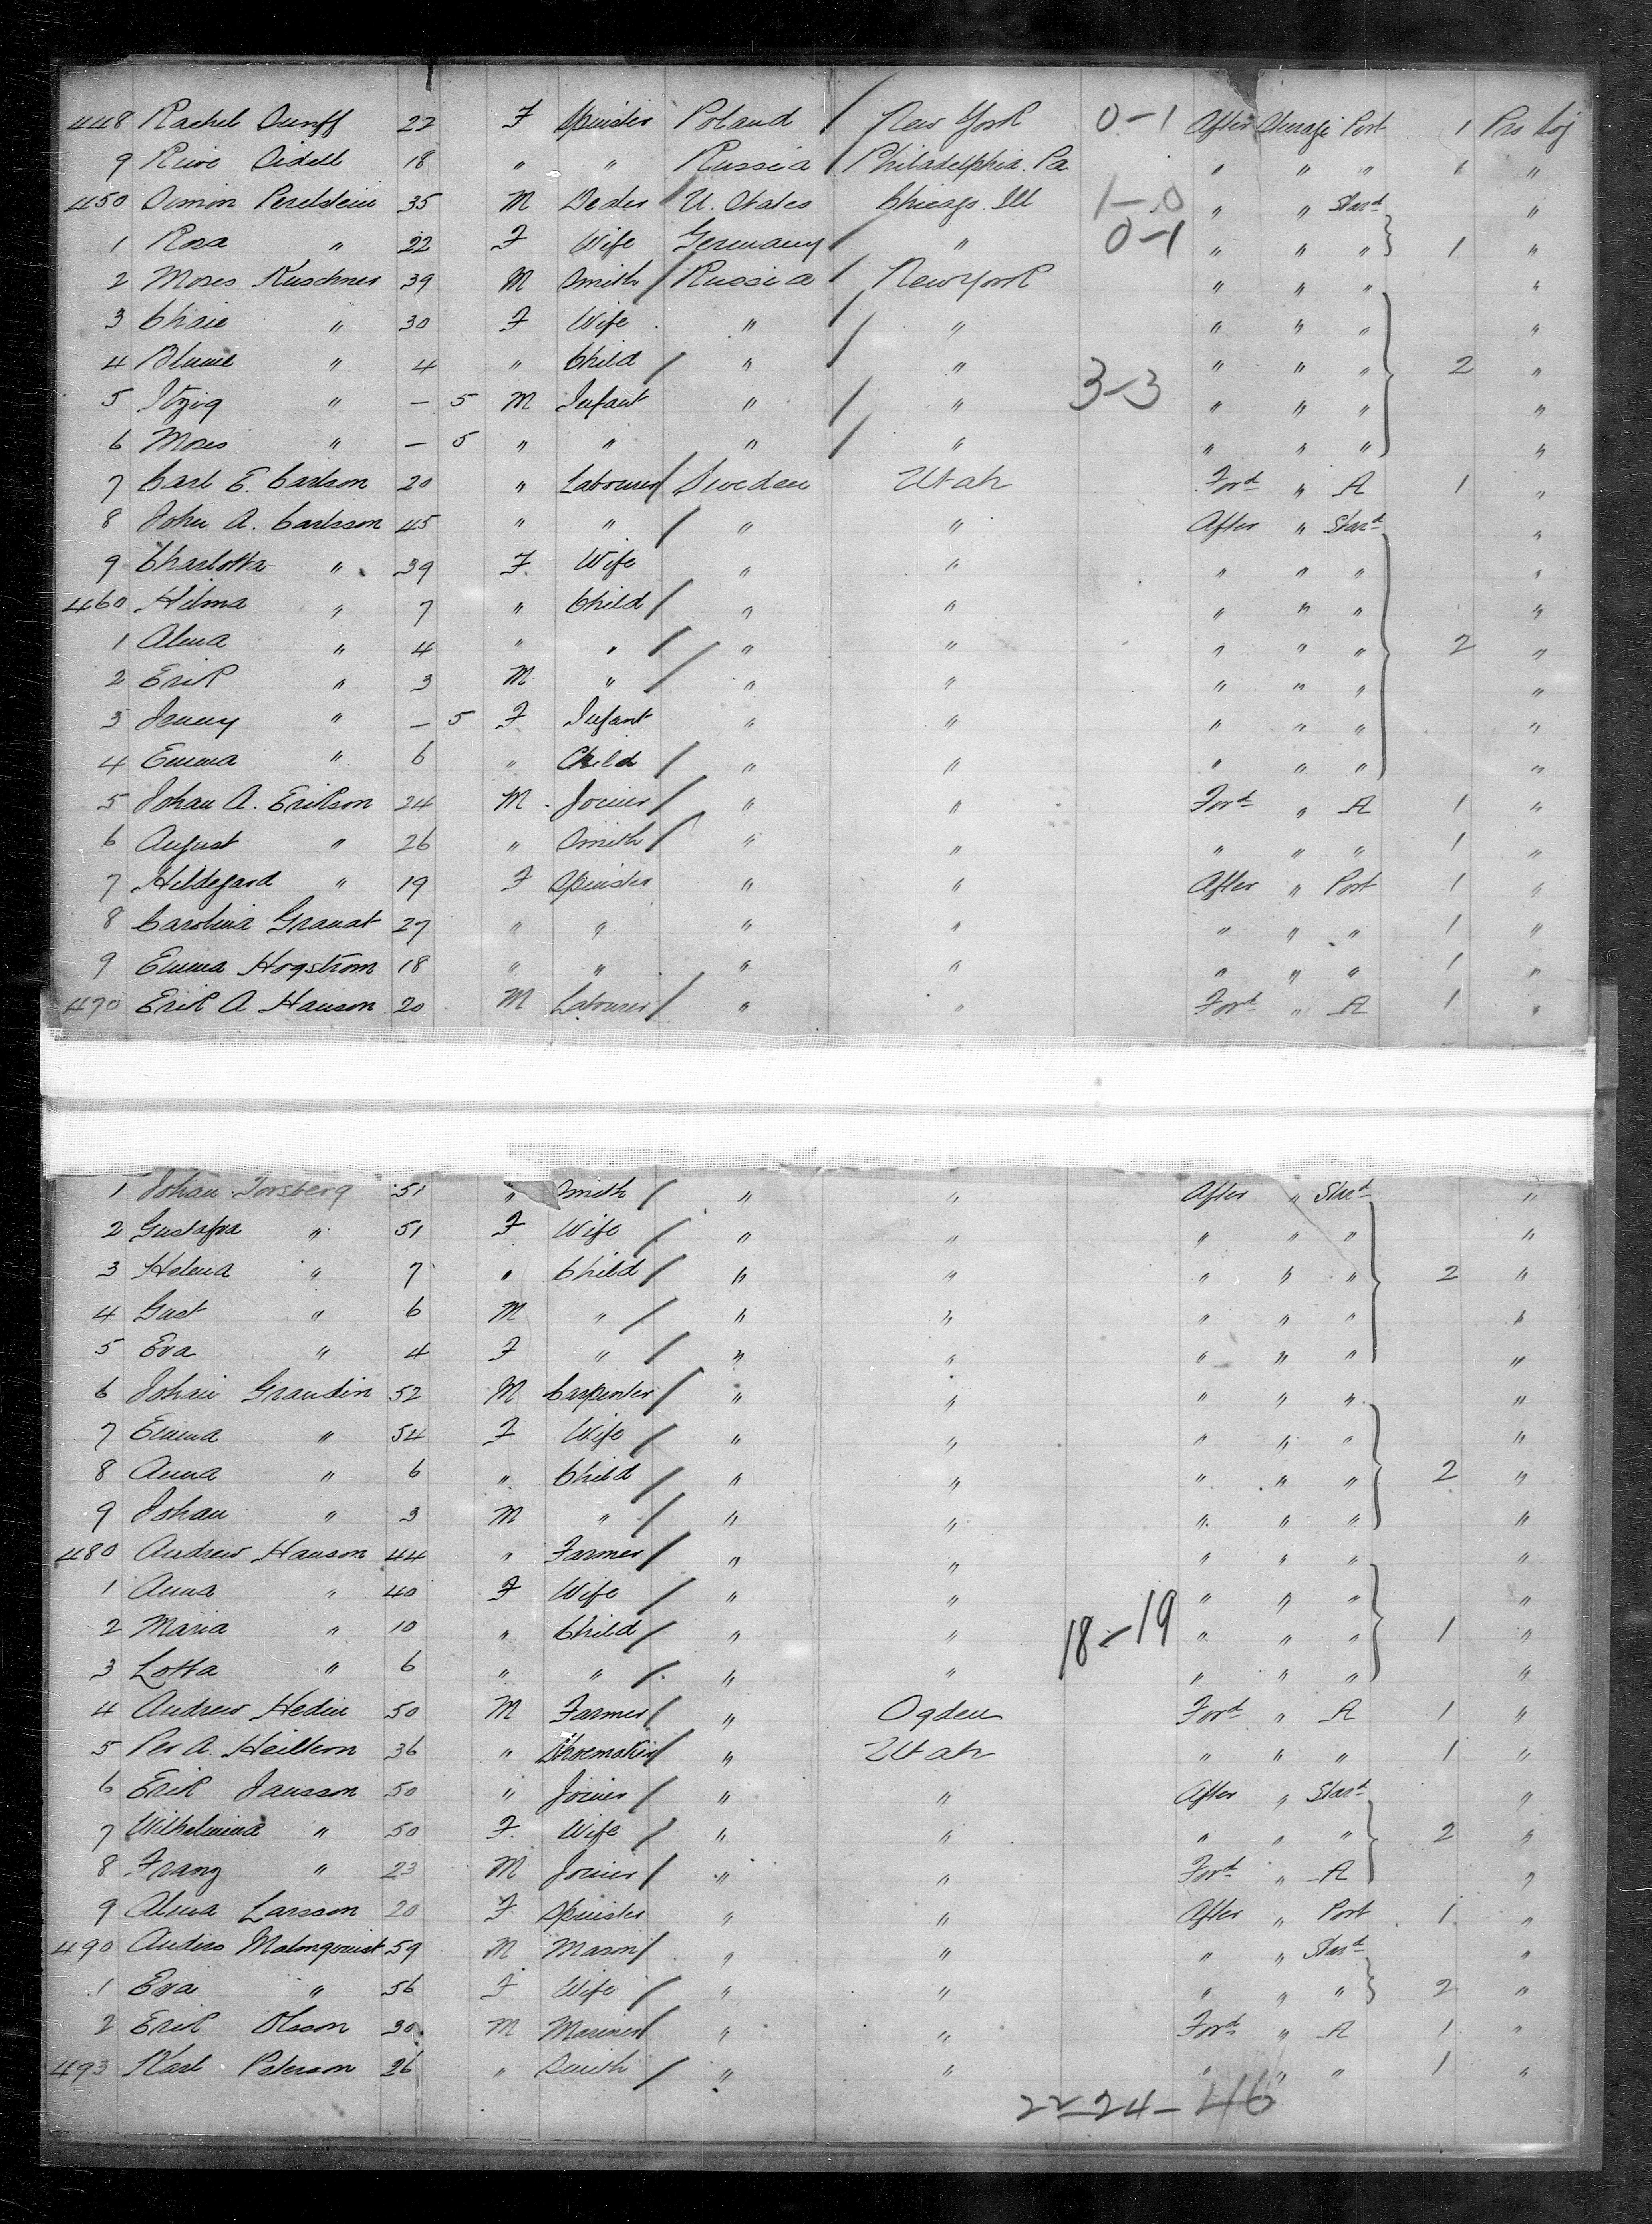 448 Rachel Dunff 22 F Spinster Poland / New York 0-1 After Steerage Port 1 Pro Soj
9 Rive Sidell 18 " " Russia / Philadelphia. Pa " " " 1 "
450 Simon Perelstein 35 M Dealer / U. States Chicago. Ill 1-0 " " Star^d "
1 Rosa " 22 F Wife Germany / " 0-1 " " " 1 "
2 Moses Kuschner 39 M Smith / Russia / New York " " " "
3 Chaie " 30 F Wife " / " " " " "
4 Blume " 4 " Child / " / " 3-3 " " " 2 "
5 Itzig " - 5 M Infant " / " " " " "
6 Moses " - 5 " " " / " " " " "
7 Carl E. Carlson 20 " Labourer / Sweden Utah For^d " A 1 "
8 John A. Carlsson 45 " " / " " After " Star^d "
9 Charlotta " 39 F Wife " " " " " "
460 Hilma " 7 " Child / " " " " " "
1 Alma " 4 " " / " " " " " 2 "
2 Erik " 3 M " / " " " " " "
3 Jenny " - 5 F Infant " " " " " "
4 Emma " 6 " Child / " " " " " "
5 Johan A. Erikson 24 M Joiner / " " For^d " A 1 "
6 August " 26 " Smith / " " " " " 1 "
7 Hildegard " 19 F Spinster " " After " Port 1 "
8 Carolina Granat 27 " " " " " " " 1 "
9 Emma Hogström 18 " " " " " " " 1 "
470 Erik A Hanson 20 M Labourer / " " For^d " A 1 "
1 Johan Forsberg 51 " Smith / " " After " Star^d "
2 Gustafva " 51 F Wife / " " " " " "
3 Helena " 7 " Child / " " " " " 2 "
4 Gust " 6 M " / " " " " " "
5 Eva " 4 F " / " " " " " "
6 Johan Grandin 52 M Carpenter / " " " " " "
7 Emma " 54 F Wife / " " " " " "
8 Anna " 6 " Child / " " " " " 2 "
9 Johan " 3 M " / " " " " " "
480 Andrew Hanson 44 " Farmer / " " " " " "
1 Anna " 40 F Wife / " " " " " "
2 Maria " 10 " Child / " " 18-19 " " " 1 "
3 Lotta " 6 " " / " " " " " "
4 Andrew Hedin 50 M Farmer / " Ogden For^d " A 1 "
5 Per A. Heiltern 36 " Shoemaker / " Utah " " " 1 "
6 Erik Jansson 50 " Joiner / " " After " Star^d "
7 Wilhelmina " 50 F Wife / " " " " " 2 "
8 Franz " 23 M Joiner / " " For^d " A "
9 Alma Larsson 20 F Spinster " " After " Port 1 "
490 Anders Malmqvist 59 M Mason / " " " " Star^d "
1 Eva " 56 F Wife / " " " " " 2 "
2 Erik Olsson 30 M Mariner / " " For^d " A 1 "
493 Karl Peterson 26 " Smith / " " " " " 1 "
22-24-46